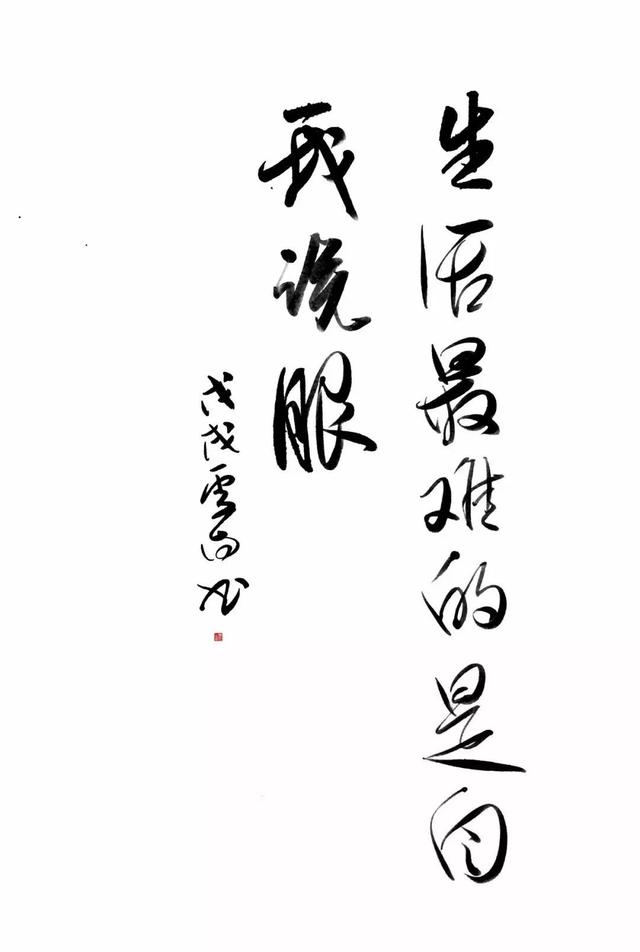 生活最难的是自
我说服
戊戌雲